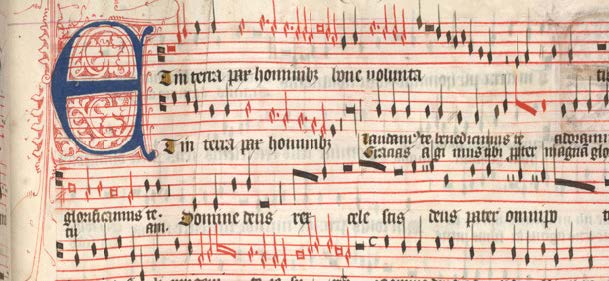 ET in terra pax hominibz bone volunta ti
T in terra pax hominibz Laudamꝰ te benedicimus te adoram
Gracias a gi mus tibi ꝓpter magnā glo
glorificamus te. Domine deus rex cele stis deus pater omnipo
tu am.